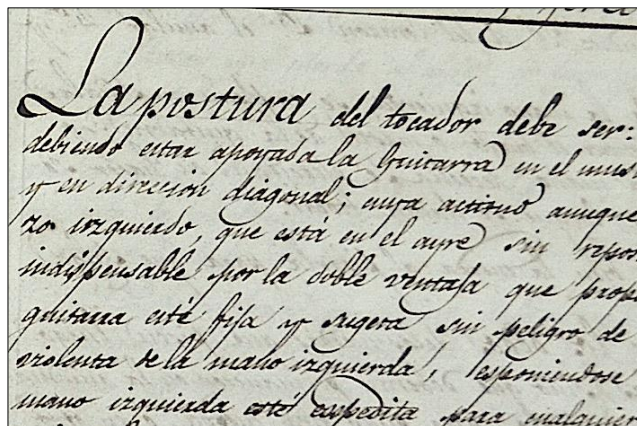 La postura del tocador debe ser:
debiendo estar apoyada la Guitarra en el mus
y en direccion diagonal; cuya actitud aunque
zo izquierdo, que está en el ayre sin repos
indispensable por la doble ventaja que prop
guitarra esté fija y sugeta sin peligro de
violenta de la mano izquierda, esponiendose
mano izquierda esté espedita para cualquier